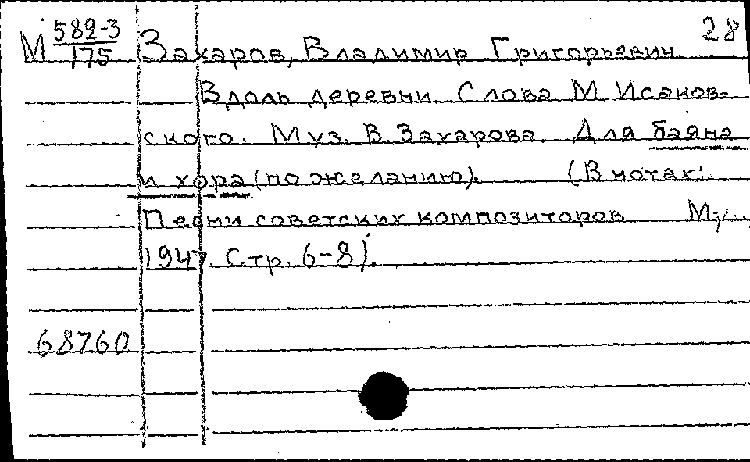 28
М 582-3/175 Захаров, Владимир Григорьевич
Вдоль деревни. Слова М. Исаков-
ского. Муз. В. Захарова. Для баяна
и хора (по желанию). (В нотах:
Песни советских композиторов М.,
1947. Стр. 6-8).
68760